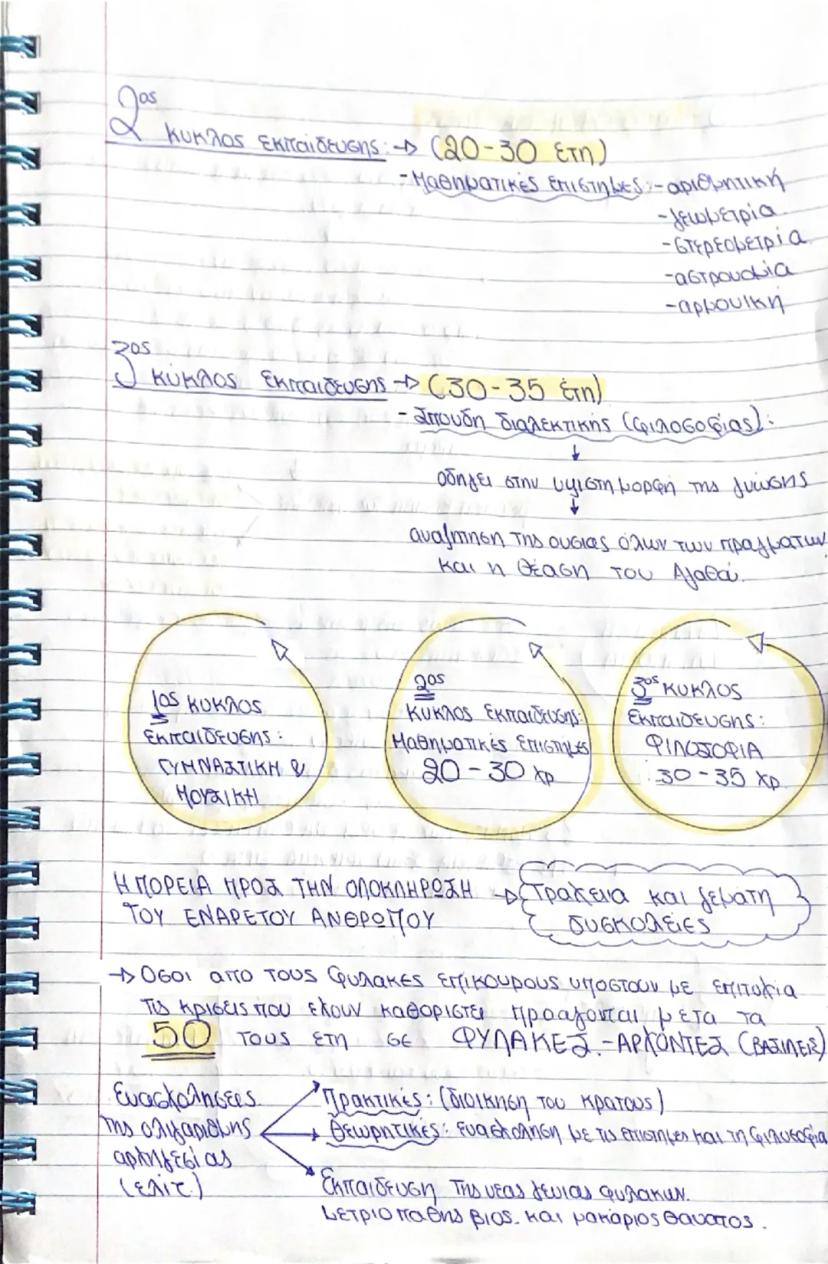 2ος κυκλος εκπαίδευσης: → (20-30 έτη)
- Μαθηματικές επιστήμες: - αριθμητική
- γεωμετρία
- στερεομετρία
- αστρονομία
- αρμονική
3ος κύκλος εκπαιδευσης → (30-35 έτη)
- Σπουδη διαλεκτικής (φιλοσοφίας):
↓
οδηγει στην υψιστη μορφή της γνώσης
↓
αναζητηση της ουσιας όλων των πραγματων
και η θέαση του Αγαθά.
1ος κυκλος
εκπαιδευσης:
ΓΥΜΝΑΣΤΙΚΗ &
ΜΟΥΣΙΚΗ
2ος
κυκλος εκπαιδευσης:
Μαθηματικές επιστημες
20-30 χρ.
3ος κυκλος
εκπαιδευσης:
ΦΙΛΟΣΟΦΙΑ
30-35 χρ.
Η ΠΟΡΕΙΑ ΠΡΟΣ ΤΗΝ ΟΛΟΚΛΗΡΩΣΗ → Τραχεια και γεματη
ΤΟΥ ΕΝΑΡΕΤΟΥ ΑΝΘΡΩΠΟΥ δυσκολείες
→ Οσοι απο τους φυλακες επικουρους υποστουν με επιτυχια
τις κρισεις που εχουν καθοριστει προαγονται μετα τα
50 τους ετη σε ΦΥΛΑΚΕΣ - ΑΡΧΟΝΤΕΣ (ΒΑΣΙΛΕΙΣ)
Ενασχολησεις
της ολιγαριθμης
αρχηγεσίας
(ελίτ.)
Πρακτικές: (διοικηση του κρατους)
Θεωρητικές: ενασχοληση με τις επιστημες και τη φιλοσοφια
Εκπαιδευση της νεας γενιας φυλακων.
μετριοπαθης βιος. και μακάριος θανατος.